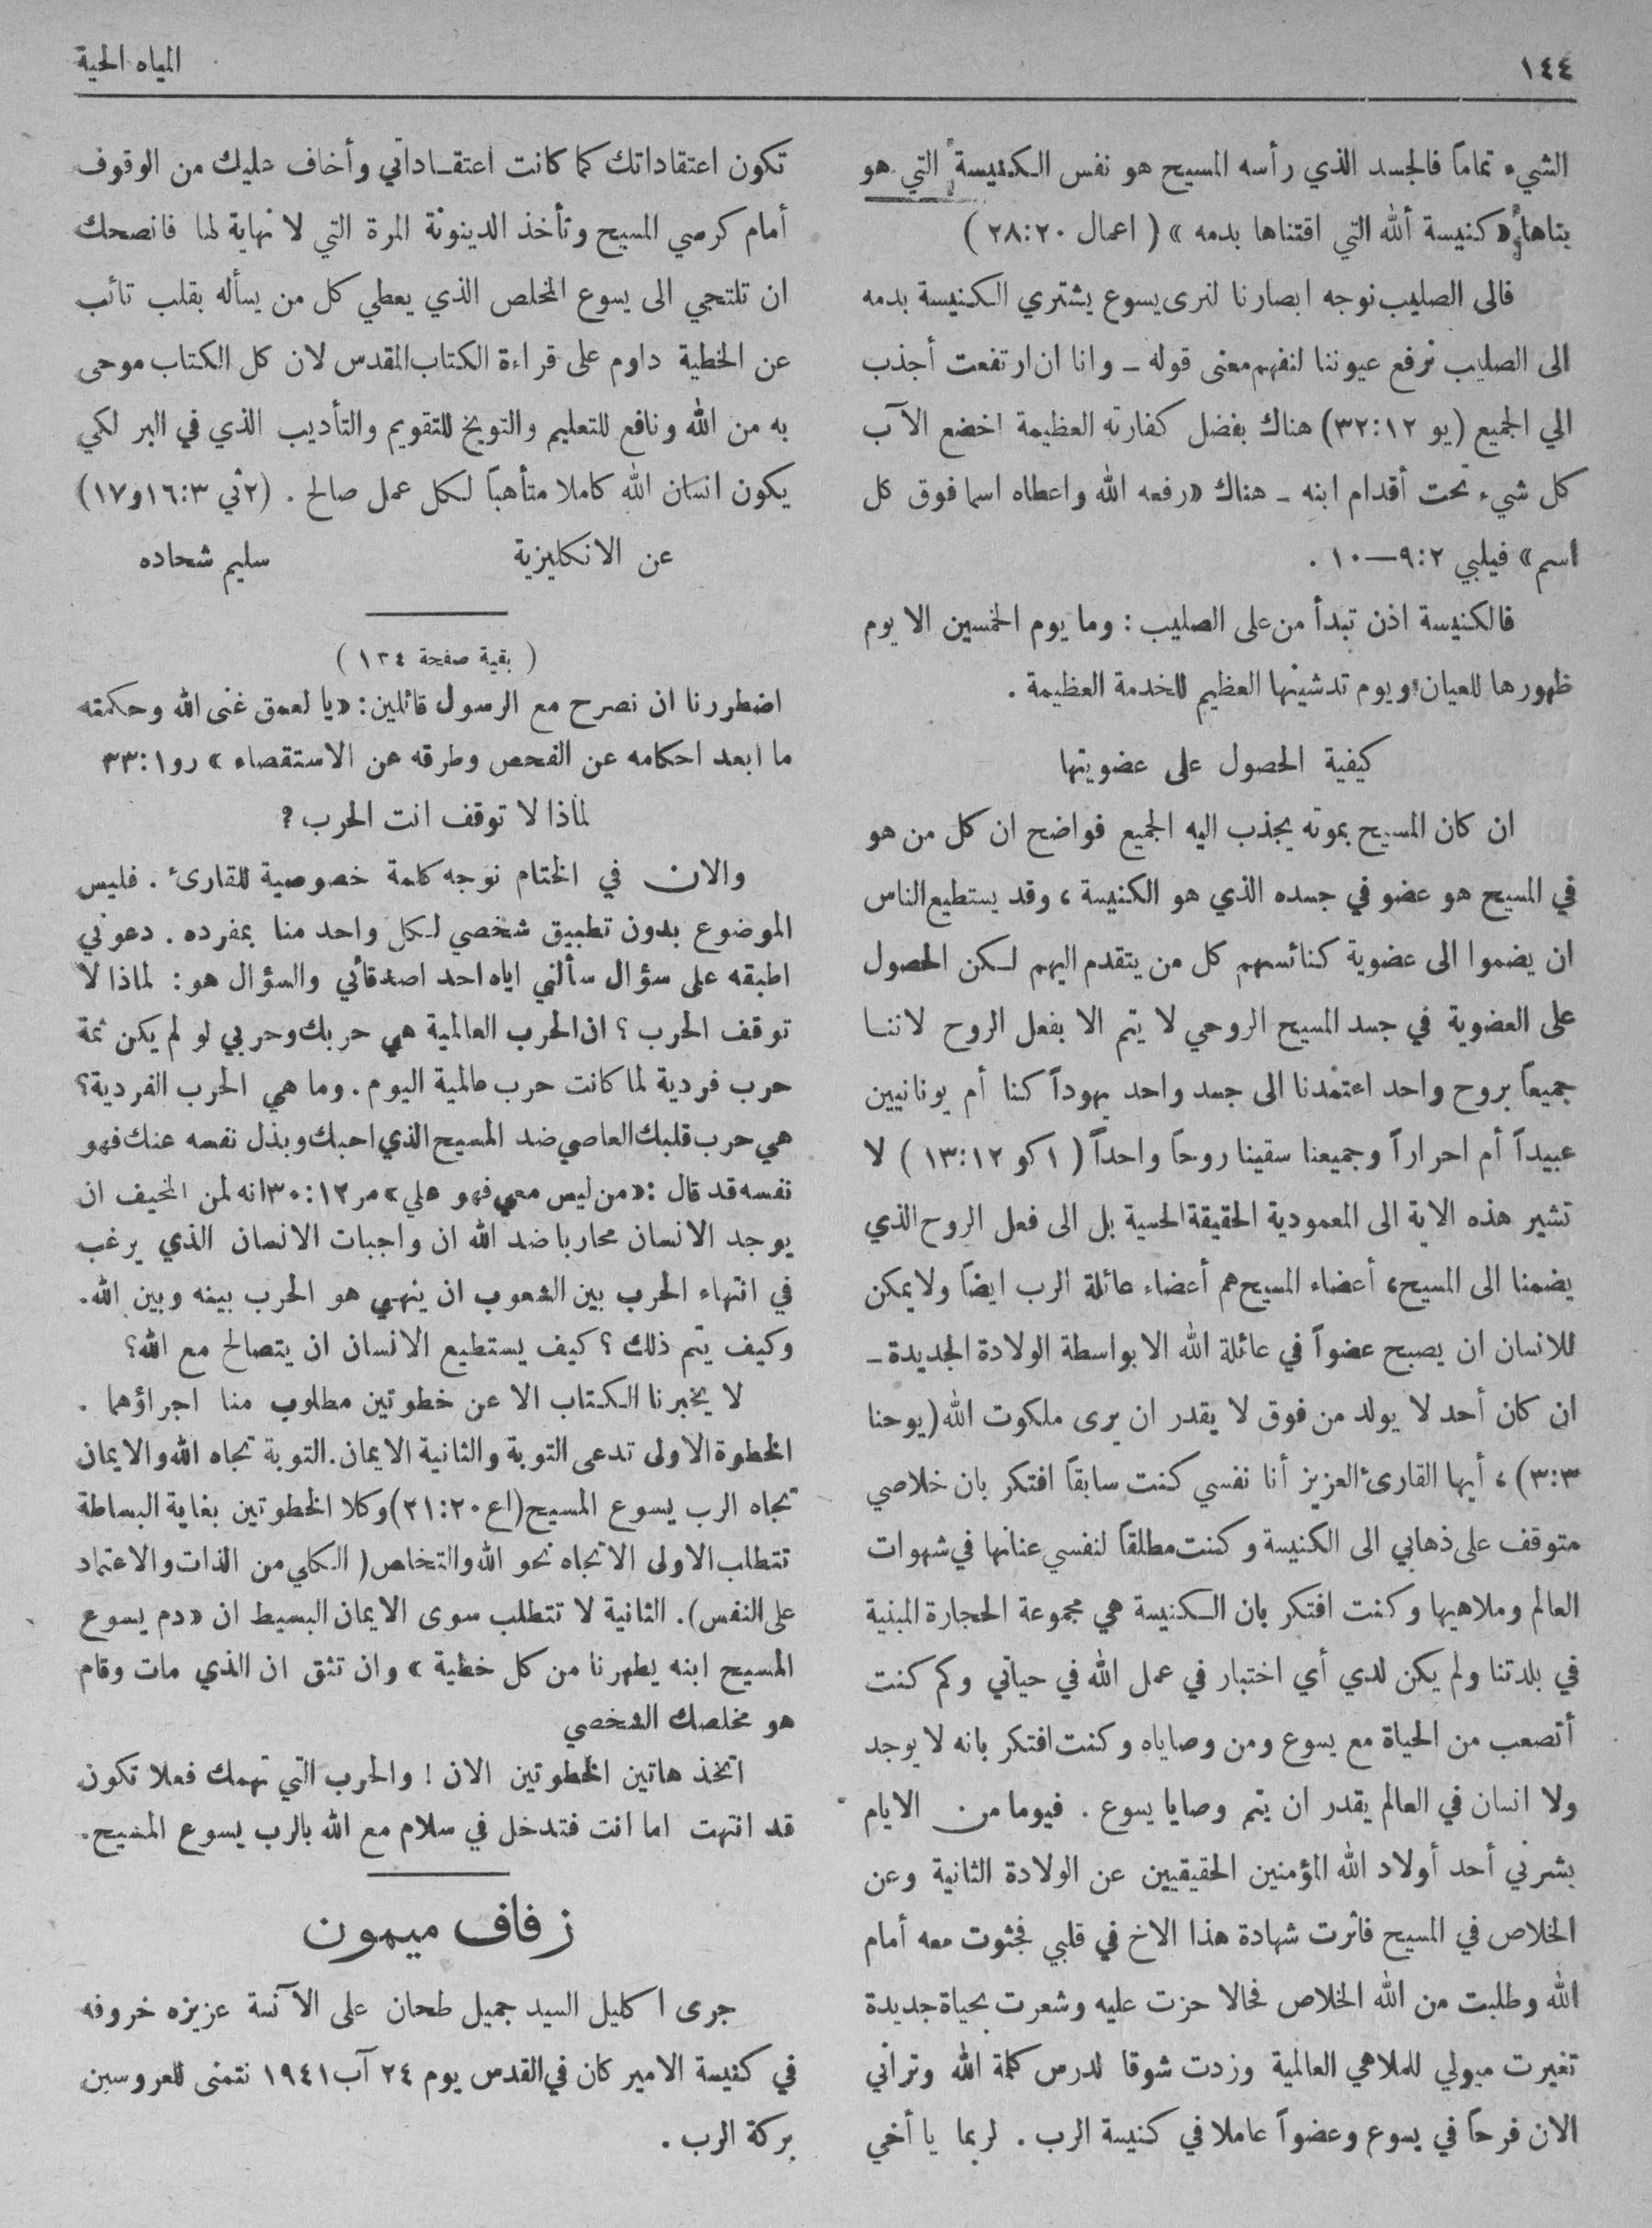 ١٤٤
المياه الحية
الشيء تماماً فالجسد الذي رأسه المسيح هو نفس الكنيسة التي هو
بناها «كنيسة ألله التي اقتناها بدمه» (اعمال ٢٨:٢٠)
فالى الصليب نوجه ابصارنا لنرى يسوع يشتري الكنيسة بدمه
الى الصليب نرفع عيوننا لنفهم معنى قوله ــ وانا ان ارتفعت أجذب
الي الجميع (يو ٣٢:١٢) هناك بفضل كفارته العظيمة اخضع الآب
كل شيء تحت أقدام ابنه ــ هناك «رفعه الله واعطاه اسما فوق كل
اسم» فيلبي ٩:٢—١٠ .
فالكنيسة اذن تبدأ من على الصليب : وما يوم الخمسين الا يوم
ظهورها للعيان ويوم تدشينها العظيم للخدمة العظيمة .
كيفية الحصول على عضويتها
ان كان المسيح بموته يجذب اليه الجميع فواضح ان كل من هو
في المسيح هو عضو في جسده الذي هو الكنيسة ، وقد يستطيع الناس
ان يضموا الى عضوية كنائسهم كل من يتقدم اليهم لكن الحصول
على العضوية في جسد المسيح الروحي لا يتم الا بفعل الروح لاننا
جميعاً بروح واحد اعتمدنا الى جسد واحد يهوداً كنا أم يونانيين
عبيداً أم احراراً وجميعنا سقينا روحاً واحداً (١ كو ١٣:١٢) لا
تشير هذه الاية الى المعمودية الحقيقة الحسية بل الى فعل الروح الذي
يضمنا الى المسيح ، أعضاء المسيح هم أعضاء عائلة الرب ايضاً ولا يمكن
للانسان ان يصبح عضواً في عائلة الله الا بواسطة الولادة الجديدة ــ
ان كان أحد لا يولد من فوق لا يقدر ان يرى ملكوت الله (يوحنا
٣:٣) ، أيها القارئ العزيز أنا نفسي كنت سابقاً افتكر بان خلاصي
متوقف على ذهابي الى الكنيسة وكنت مطلقاً لنفسي عنانها في شهوات
العالم وملاهيها وكنت افتكر بان الكنيسة هي مجموعة الحجارة المبنية
في بلدتنا ولم يكن لدي أي اختبار في عمل الله في حياتي وكم كنت
أتصعب من الحياة مع يسوع ومن وصاياه وكنت افتكر بانه لا يوجد
ولا انسان في العالم يقدر ان يتم وصايا يسوع . فيوما من الايام
بشرني أحد أولاد الله المؤمنين الحقيقيين عن الولادة الثانية وعن
الخلاص في المسيح فاثرت شهادة هذا الاخ في قلبي فجثوت معه أمام
الله وطلبت من الله الخلاص فحالا حزت عليه وشعرت بحياة جديدة
تغيرت ميولي للملاهي العالمية وزدت شوقا لدرس كلمة الله وتراني
الان فرحاً في يسوع وعضواً عاملا في كنيسة الرب . لربما يا أخي
تكون اعتقاداتك كما كانت اعتقاداتي وأخاف عليك من الوقوف
أمام كرسي المسيح وتأخذ الدينونة المرة التي لا نهاية لها فانصحك
ان تلتجي الى يسوع المخلص الذي يعطي كل من يسأله بقلب تائب
عن الخطية داوم على قراءة الكتاب المقدس لان كل الكتاب موحى
به من الله ونافع للتعليم والتوبيخ للتقويم والتأديب الذي في البر لكي
يكون انسان الله كاملا متأهباً لكل عمل صالح . (٢تي ١٦:٣و١٧)
عن الانكليزية سليم شحاده
(بقية صفحة ١٣٤)
اضطررنا ان نصرح مع الرسول قائلين : «يا لعمق غنى الله وحكمته
ما ابعد احكامه عن الفحص وطرقه عن الاستقصاء» رو٣٣:١
لماذا لا توقف انت الحرب ?
والان في الختام نوجه كلمة خصوصية للقارئ . فليس
الموضوع بدون تطبيق شخصي لكل واحد منا بمفرده . دعوني
اطبقه على سؤال سألني اياه احد اصدقائي والسؤال هو : لماذا لا
توقف الحرب ؟ ان الحرب العالمية هي حربك وحربي لو لم يكن ثمة
حرب فردية لما كانت حرب عالمية اليوم . وما هي الحرب الفردية؟
هي حرب قلبك العاصي ضد المسيح الذي احبك وبذل نفسه عنك فهو
نفسه قد قال : «من ليس معي فهو علي» مر ٣٠:١٢ انه لمن المخيف ان
يوجد الانسان محاربا ضد الله ان واجبات الانسان الذي يرغب
في انتهاء الحرب بين الشعوب ان ينهي هو الحرب بينه وبين الله .
وكيف يتم ذلك ؟ كيف يستطيع الانسان ان يتصالح مع الله؟
لا يخبرنا الكتاب الا عن خطوتين مطلوب منا اجراؤهما .
الخطوة الاولى تدعى التوبة والثانية الايمان . التوبة تجاه الله والايمان
تجاه الرب يسوع المسيح (اع ٢١:٢٠) وكلا الخطوتين بغاية البساطة
تتطلب الاولى الاتجاه نحو الله والتخلص (الكلي من الذات والاعتماد
على النفس) . الثانية لا تتطلب سوى الايمان البسيط ان «دم يسوع
المسيح ابنه يطهرنا من كل خطية» وان تثق ان الذي مات وقام
هو مخلصك الشخصي
اتخذ هاتين الخطوتين الان ! والحرب التي تهمك فعلا تكون
قد انتهت اما انت فتدخل في سلام مع الله بالرب يسوع المسيح .
زفاف ميمون
جرى اكليل السيد جميل طحان على الآنسة عزيزه خروفه
في كنيسة الامير كان في القدس يوم ٢٤ آب ١٩٤١ نتمنى للعروسين
بركة الرب .